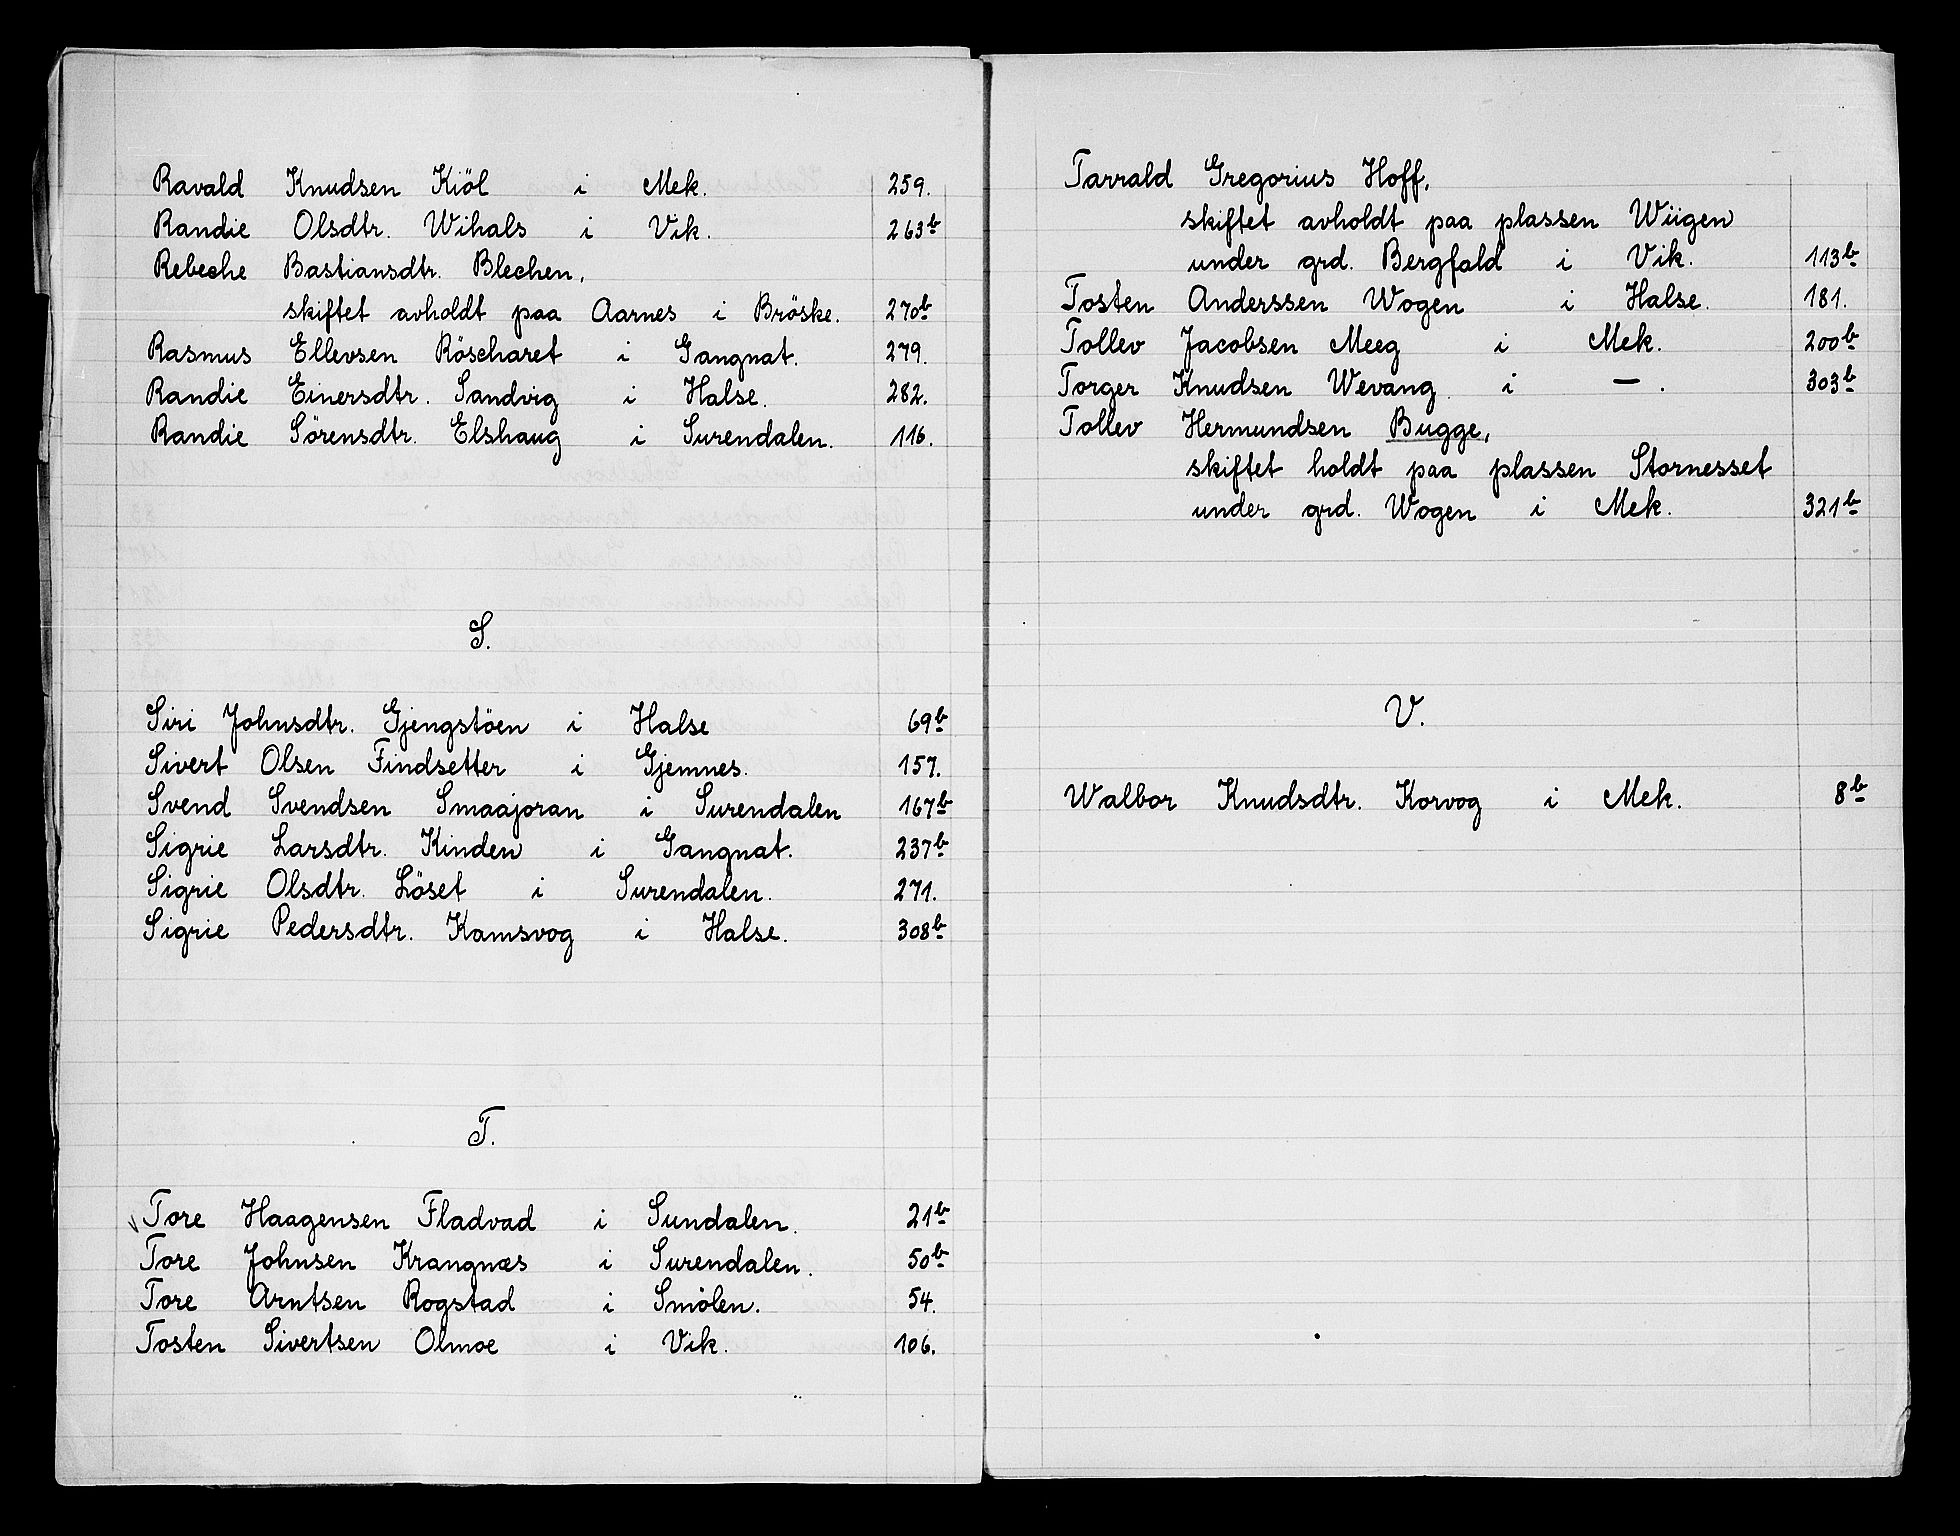 Ravald Knudsen Kiöl i Mek. 259.
Randie Olsdtr. Wihals i Vik. 263b
Rebeche Bastiansdtr. Blechen,
skiftet avholdt paa Aarnes i Bröske. 270b
Rasmus Ellevsen Röscharet i Gangnat. 279.
Randie Einersdtr. Sandvig i Halse. 282.
Randie Sörensdtr. Elshaug i Surendalen. 116.
S.
Siri Johnsdtr. Gjengstöen i Halse 69b
Sivert Olsen Findsetter i Gjemnes. 157.
Svend Svendsen Smaajoran i Surendalen 167b
Sigrie Larsdtr. Kinden i Gangnat. 237b
Sigrie Olsdtr. Löset i Surendalen. 271.
Sigrie Pedersdtr. Kamsvog i Halse. 308b
T.
Tore Haagensen Fladvad i Sundalen. 21b
Tore Johnsen Krangnæs i Surendalen. 50b
Tore Arntsen Rogstad i Smölen. 54.
Tosten Sivertsen Olmoe i Vik. 106.
Tarrald Gregorius Hoff,
skiftet avholdt paa plassen Wiigen
under grd. Bergfald i Vik. 113b
Tosten Anderssen Wogen i Halse. 181.
Tollev Jacobsen Meeg i Mek. 200b
Torger Knudsen Wevang i — . 303b
Tollev Hermundsen Bugge,
skiftet holdt paa plassen Stornesset
under grd. Wogen i Mek. 321b
V.
Walbor Knudsdtr. Korvog i Mek. 8b